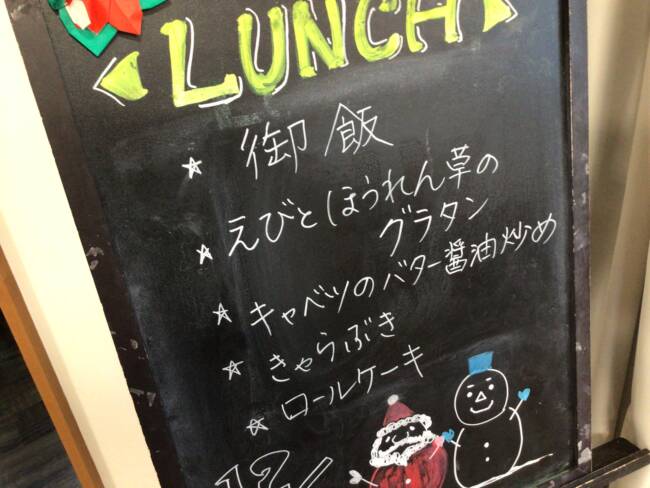 LUNCH
☆ 御飯
☆ えびとほうれん草の
グラタン
☆ キャベツのバター醤油炒め
☆ きゃらぶき
☆ ロールケーキ
12/